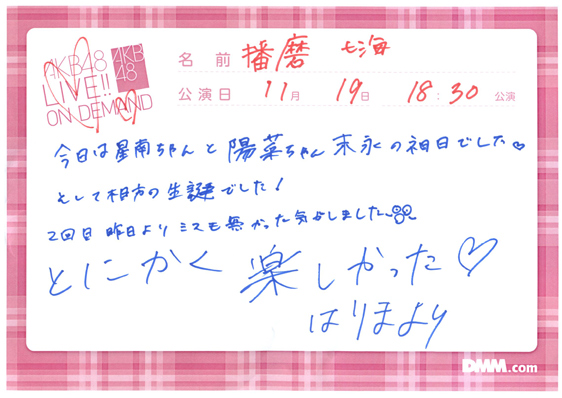 AKB48
LIVE!!
ON DEMAND
AKB
48
名前 播磨 七海
公演日 11月 19日 18:30 公演
今日は星南ちゃんと陽菜ちゃん末永の初日でした♡
そして相方の生誕でした!
2回目昨日よりミスも無かった気がしました
とにかく 楽しかった♡
はりまより
DMM.com